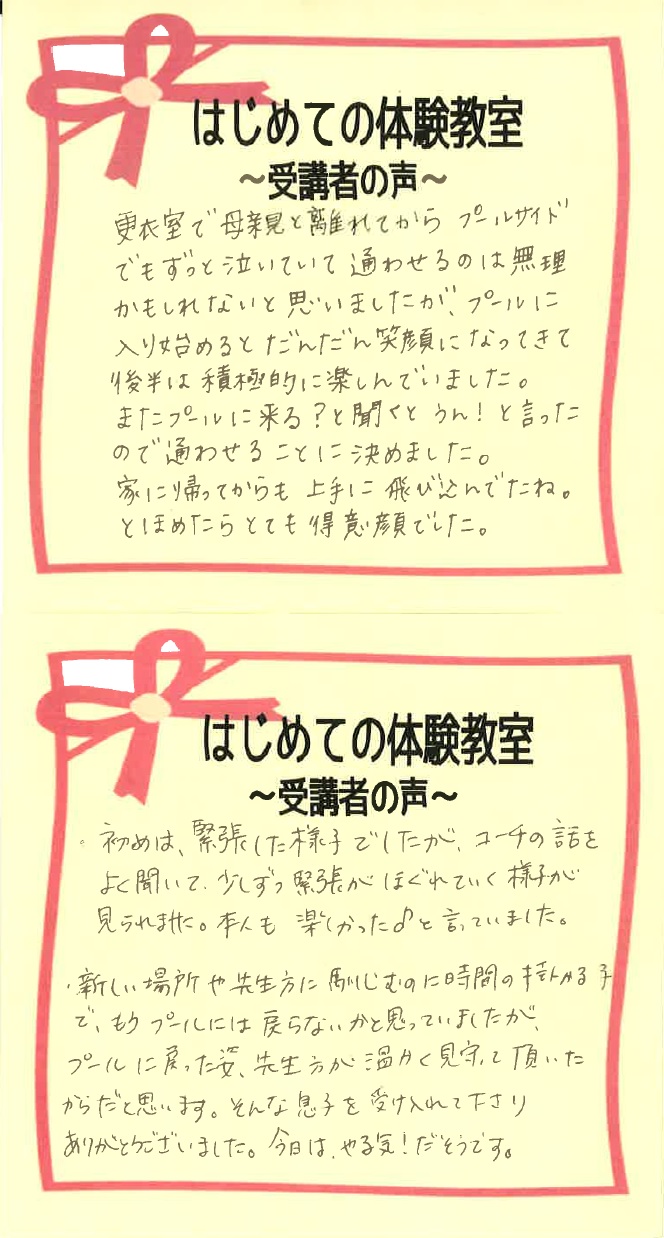 はじめての体験教室
~受講者の声~
更衣室で母親と離れてから プールサイド
でもずっと泣いていて 通わせるのは無理
かもしれないと思いましたが、プールに
入り始めるとだんだん笑顔になってきて
後半は積極的に楽しんでいました。
またプールに来る?と聞くとうん!と言った
ので通わせることに決めました。
家に帰ってからも 上手に飛び込んでたね。
とほめたらとても得意顔でした。
はじめての体験教室
~受講者の声~
・初めは、緊張した様子でしたが、コーチの話を
よく聞いて、少しずつ緊張がほぐれていく様子が
見られました。本人も 楽しかった♪と言っていました。
・新しい場所や先生方に馴じむのに時間の掛かる子
で、もうプールには戻らないかと思っていましたが、
プールに戻った姿、先生方が温かく見守って頂いた
からだと思います。そんな息子を受け入れて下さり
ありがとうございました。今日は、やる気!だそうです。